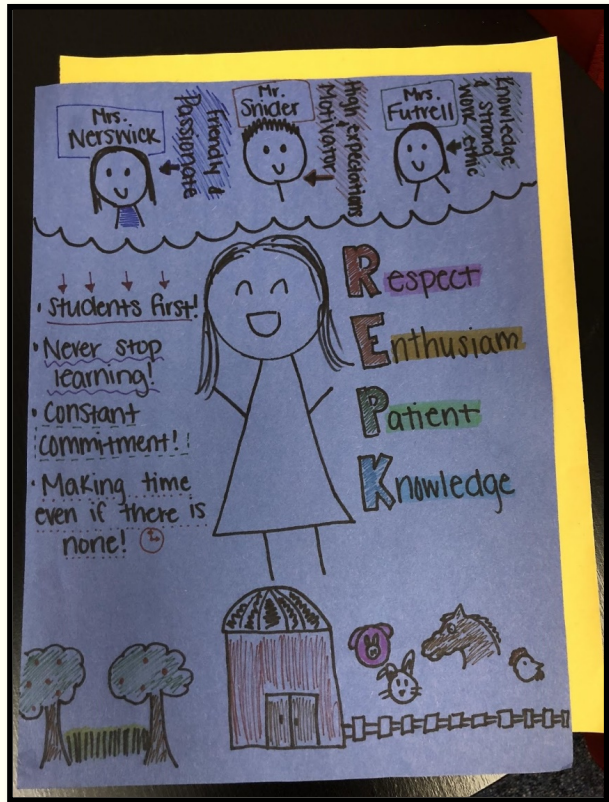 Mrs.
Nerswick
friendly &
Passionate
Mr.
Snider
High expectations
&
Motivator
Mrs.
Futrell
Knowledge
& strong
work ethic
• Students first!
• Never stop
learning!
• Constant
commitment!
• Making time
even if there is
none!
Respect
Enthusiam
Patient
Knowledge